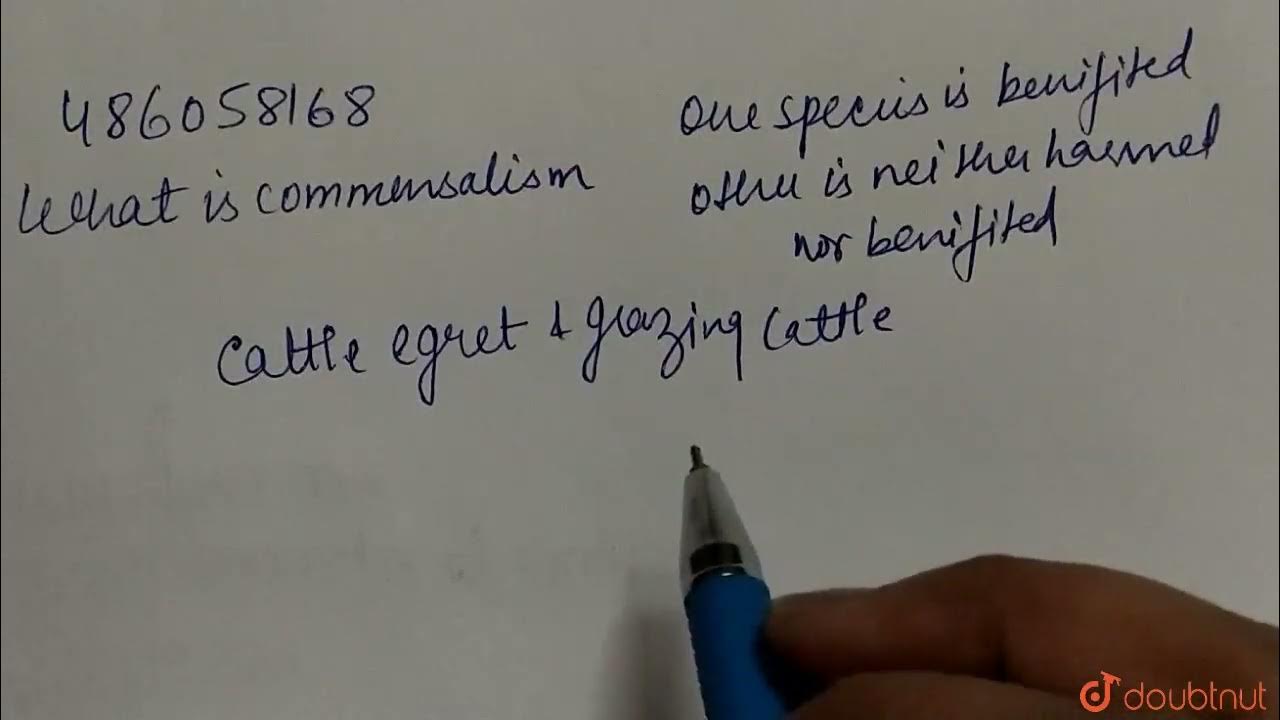 486058168
What is commensalism
One species is benifited
other is neither harmed
nor benifited
Cattle egret & grazing cattle
doubtnut